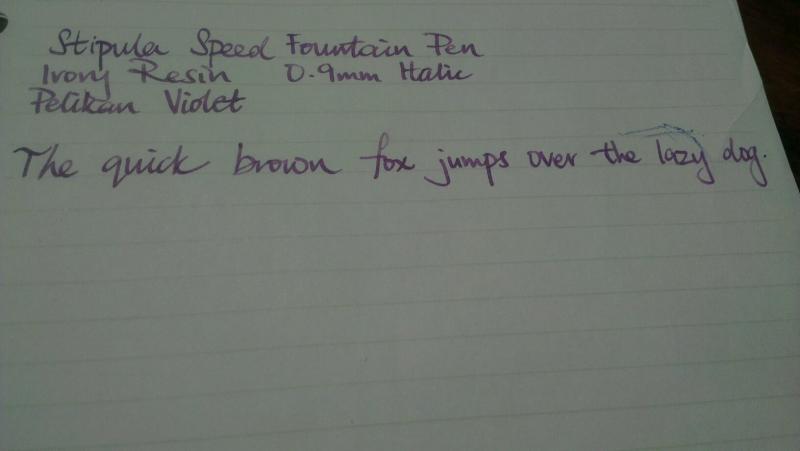 Stipula Speed Fountain Pen
Ivory Resin 0.9mm Italic
Pelikan Violet
The quick brown fox jumps over the lazy dog.